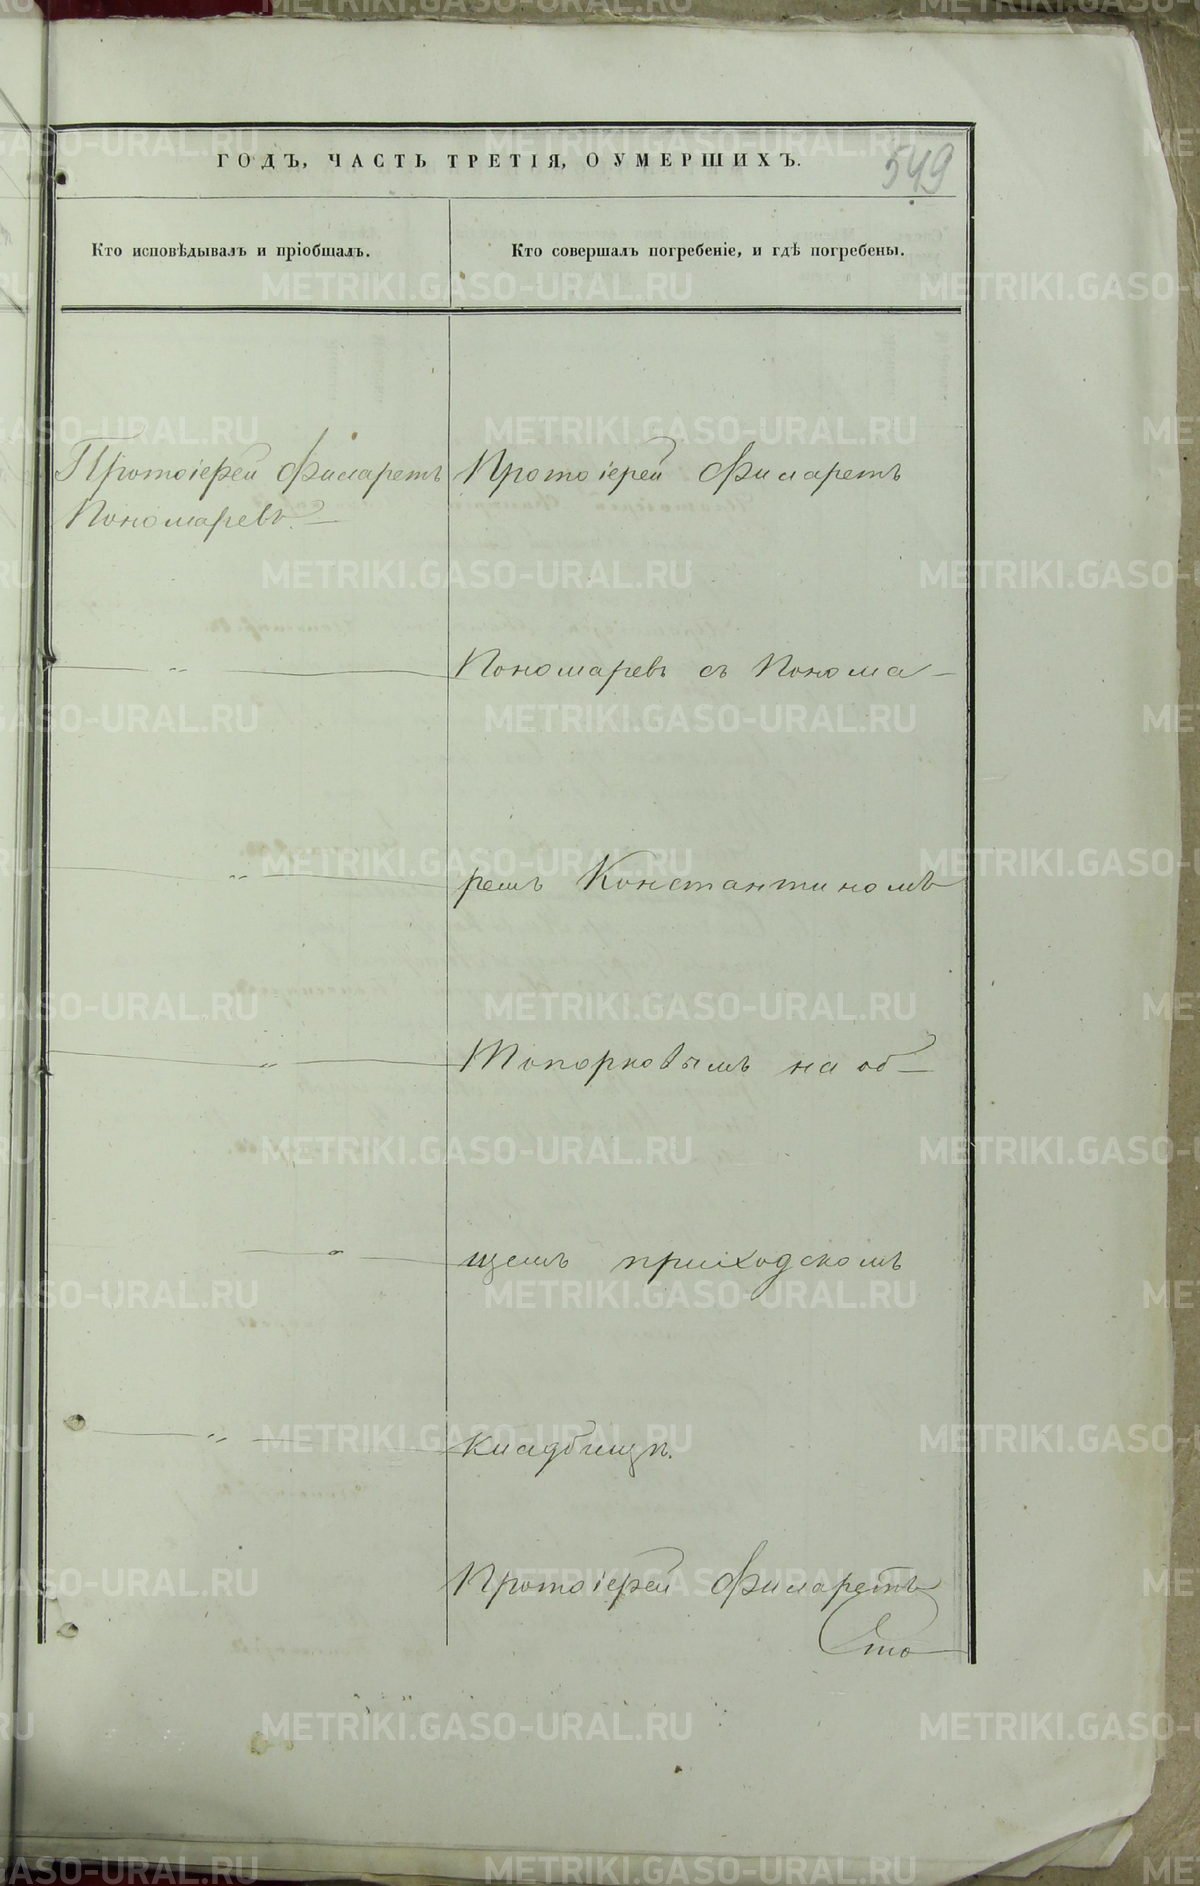 ГОДЪ, ЧАСТЬ ТРЕТІЯ, О УМЕРШИХЪ.
549
Кто исповѣдывалъ и пріобщалъ.
Кто совершалъ погребеніе, и гдѣ погребены.
Протоіерей Филаретъ
Пономаревъ.
Протоіерей Филаретъ
Пономаревъ съ Понома-
ремъ Константиномъ
Топорковымъ на об-
щемъ приходскомъ
кладбищѣ.
Протоіерей Филаретъ
METRIKI.GASO-URAL.RU